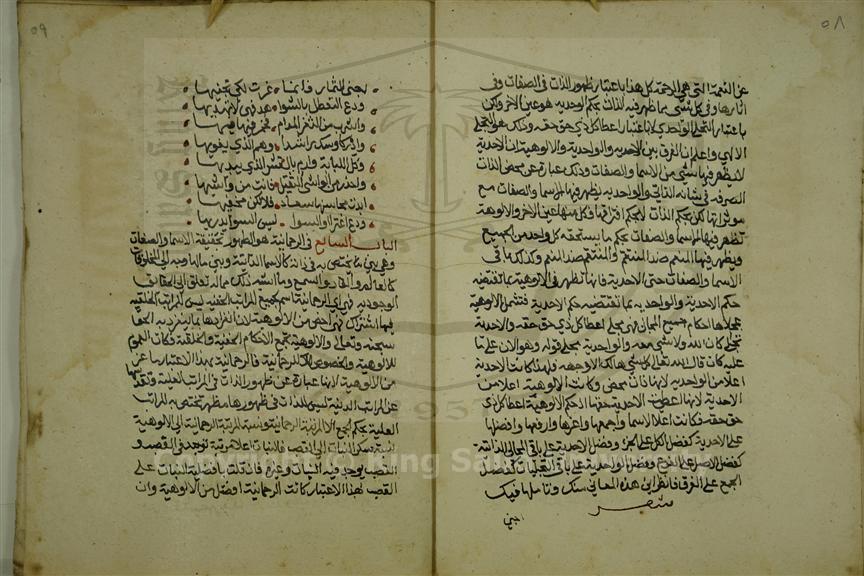 ٥٨
عن النعمة التي هي الرحمة كل هذا باعتبار ظهور الذات في الصفات وفي
اثارها وفي كل شي مما ظهر فيه الذات بحكم الواحدية هو عين الاخر ولكن
باعتبار التجلي الواحدي لا باعتبار اعطا كل ذي حق حقه وذلك هو التجلي
الالهي واعلم ان الفرق بين الاحدية والواحدية والالوهية ان الاحدية
لا يظهر فيها شي من الاسما والصفات وذلك عبارة عن محض الذات
الصرفه في شانه الذاتي والواحديه يظهر فيها الاسما والصفات مع
موثراتها لكن بحكم الذات لا بحكم افتراقها فكل منها عين الاخر والالوهة
تظهر فيها الاسما والصفات بحكم ما يستحقه كل واحد من الجميع
ويظهر فيها المنعم ضد المنتقم والمنتقم ضد المنعم وكذلك باقي
الاسما والصفات حتى الاحدية فانها تظهر في الالوهية بما تقتضيه
حكم الاحدية والواحديه بما تقتضيه حكم الاحدية فتشمل الالوهية
بمجلاها احكام جميع المجالي فهي مجلى اعطا كل ذي حق حقه والاحدية
مجلى كان الله ولا شي معه والواحدية مجلى قوله وهو الان على ما
عليه كان قال الله تعالى كل شي هالك الا وجهه فلهذا كانت الاحدية
اعلا من الواحديه لانها ذات محض وكانت الالوهية اعلا من
الاحدية لانها اعطت الاحدية حقها اذ حكم الالوهية اعطا كل ذي
حق حقه فكانت اعلا الاسما واجمعها واعزها وارفعها وافضلها
على الاحدية كفضل الكل على الجزء وفضل الاحدية على باقي المجالي الذاتية
كفضل الاصل على الفرع وفضل الواحدية على باقي التجليات كفضل
الجمع على الفرق فانظر اين هذه المعاني منك وتاملها فيك
شعر
اجني
٥٩
اجني الثمار فانما غرست لكي تجنيها
ودع التعطل بالسوا
واشرب من الثغر المدام
وادر كؤسك راشدا وهم الذي يغويها
واحذر من الواشي الثقيل فانت من واشيها
ابدت محاسنها سعاد فلا تكن مخفيها
ودع اغترارا بالسوا ليس السوا يدريها
الباب السابع في الرحمانية هو الظهور بحقيقة الاسما والصفات
وهي بين ما يختص به في ذاته كالاسما الذاتية وبين ما لها وجه الى المخلوقات
كالعالم والقادر والسميع وما اشبه ذلك مما له تعلق الى الحقايق
الوجوديه فهي اي الرحمانية اسم لجميع المراتب الحقيه ليس للمراتب الخلقيه
فيها اشتراك فهي اخص من الالوهية لانفرادها بما ينفرد به الحق
سبحنه وتعالى والالوهية تجمع الاحكام الحقية والخلقية فكان العموم
للالوهية والخصوص للرحمانية فالرحمانية بهذا الاعتبار اعز
من الالوهية لانها عبارة عن ظهور الذات في المراتب العلية وتقدسها
عن المراتب الدنية ليس للذات في ظهورها مظهر تختص به المراتب
العلية بحكم الجمع الا المرتبة الرحمانية ونسبة المرتبة الرحمانية الى الالوهية
نسبة سكر النبات الى القصب فالنبات اعلا مرتبة توجد في القصب و
القصب يوجد فيه النبات وغيره فان قلت بافضلية النبات على
القصب بهذا الاعتبار كانت الرحمانية افضل من الالوهية وان